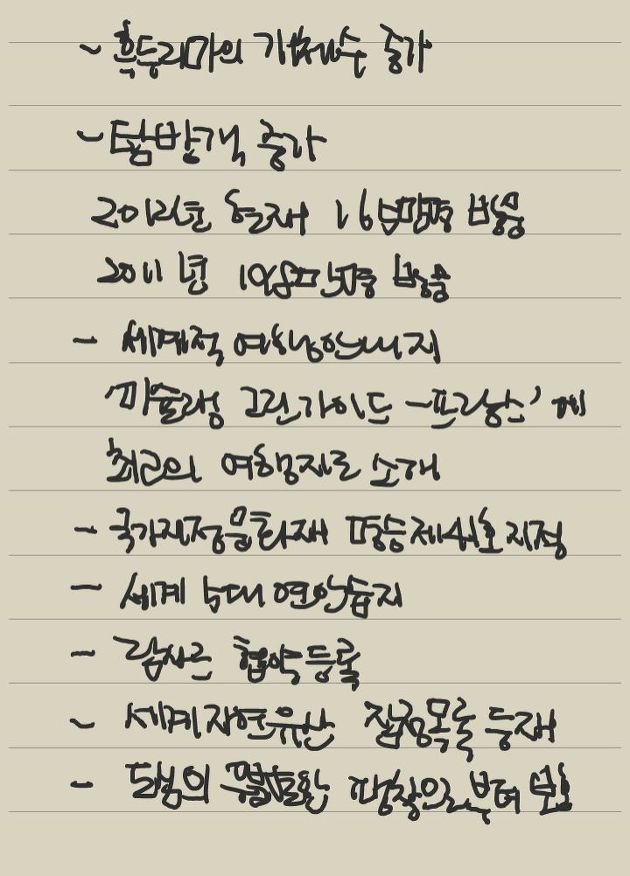 ~ 흑두리마의 기체수 증가
~ 탐방객 증가
2012년 현재 165만명 방문
2011년 198만명 방문
- 세계적 여행안내지
'미슐랭 그린가이드 -프랑스'에
최고의 여행지로 소개
- 국가지정문화재 명승제41호지정
- 세계 5대 연안습지
- 람사르 협약등록
~ 세계자연유산 잠정목록 등재
- 도심의 무분별한 팽창으로부터 보호